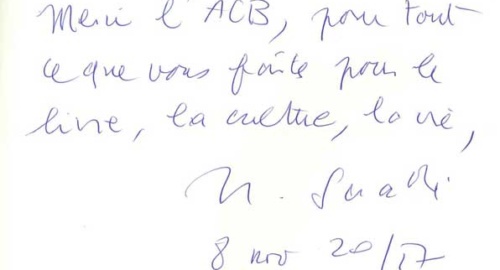 Merci l'ACB, pour tout
ce que vous faites pour le
livre, la culture, la vie,
N.
8 nov 20/17